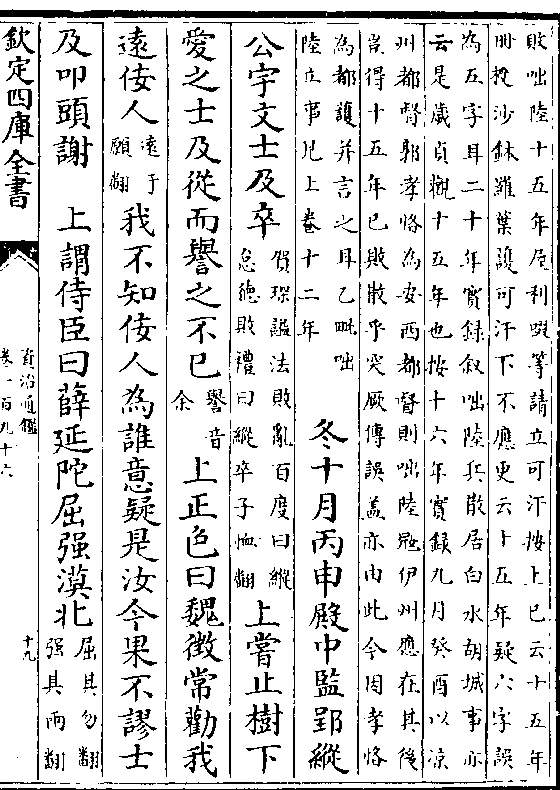 敗咄陸十五年屋利啜等請立可汗按上已云十五年
冊授沙鉢羅葉護可汗下不應更云十五年疑六字誤
為五字耳二十年實録叙咄陸兵散居白水胡城事亦
云是歲貞觀十五年也按十六年實録九月癸酉以涼
州都督郭孝恪為安西都督則咄陸寇伊州應在其後
豈得十五年已敗散乎突厥傳誤蓋亦由此今因孝恪
為都護并言之耳乙毗咄
陸立事見上卷十二年
冬十月丙申殿中監郢縱
公宇文士及卒
賀琛諡法敗亂百度曰縱
怠德敗禮曰縱卒子恤翻
上嘗止樹下
愛之士及從而譽之不已
譽音
余
上正色曰魏徵常勸我
遠佞人
遠于
願翻
我不知佞人為誰意疑是汝今果不謬士
及叩頭謝　上謂侍臣曰薛延陀屈强漠北
屈其勿翻
强其兩翻
欽定四庫全書
資治通鑑
卷一百九十六
十九